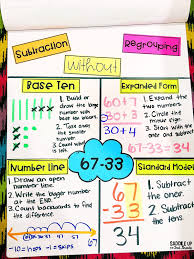 Subtraction
Regrouping
Without
Base Ten
1. Build or
draw the large
number with
ten blocks.
2. Take away
the smaller
number.
3. Count what
is left.
Expanded Form
60+7
30+3
30+4
1. Expand the
two numbers.
2. Circle the
minus sign.
3. Start with
ones.
67-33
Number Line
1. Draw an open
number line.
2. Write the bigger number
at the END.
3. Count backwards to find
the difference.
67
-10 = hops
-1 = skips
Standard Model
67
-33
34
1. Subtract
the ones.
2. Subtract
the tens.
34